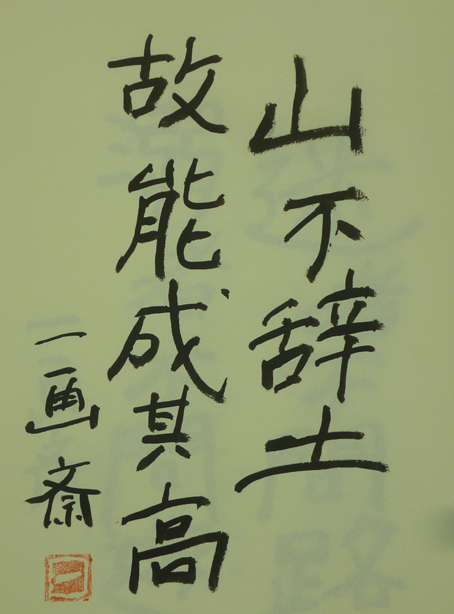 山不辞土
故能成其高
一画斋